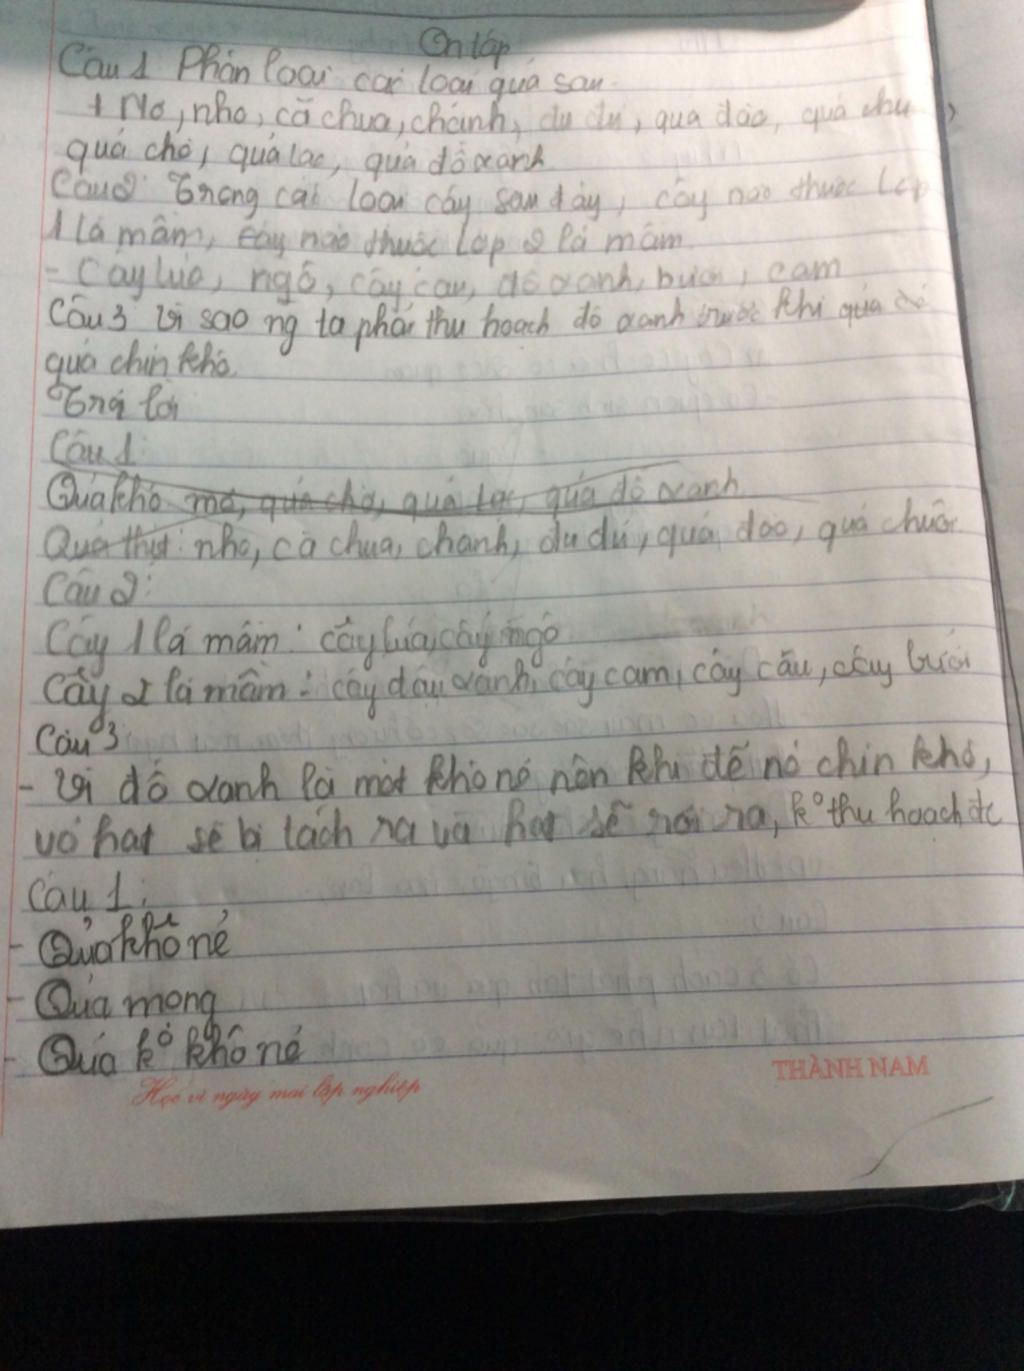 Ôn tập
Câu 1 Phân loại các loại quả sau
+ Mơ, nho, cà chua, chanh, đu đủ, quả đào, quả chu
quả chò, quả lạc, quả đỗ xanh
Câu 2: Trong các loại cây sau đây, cây nào thuộc lớp
1 lá mầm, cây nào thuộc lớp 2 lá mầm
- Cây lúa, ngô, cây cau, đỗ xanh, bưởi, cam
Câu 3 Vì sao ng ta phải thu hoạch đỗ xanh trước khi quả
quả chín khô.
Trả lời
Câu 1:
Quả khô mơ, quả chò, quả lạc, quả đỗ xanh
Quả thịt: nho, cà chua, chanh, đu đủ, quả đào, quả chuối
Câu 2:
Cây 1 lá mầm: cây lúa, cây ngô
Cây 2 lá mầm: cây đậu xanh, cây cam, cây cău, cây bưởi
Câu 3
- Vì đỗ xanh là một khô nẻ nên khi để nó chín khô,
vỏ hạt sẽ bị tách ra và hạt sẽ rơi ra, kº thu hoạch đc
Câu 1:
- Quả khô nẻ
- Quả mọng
- Quả kº khô nẻ
Học vì ngày mai lập nghiệp
THÀNH NAM